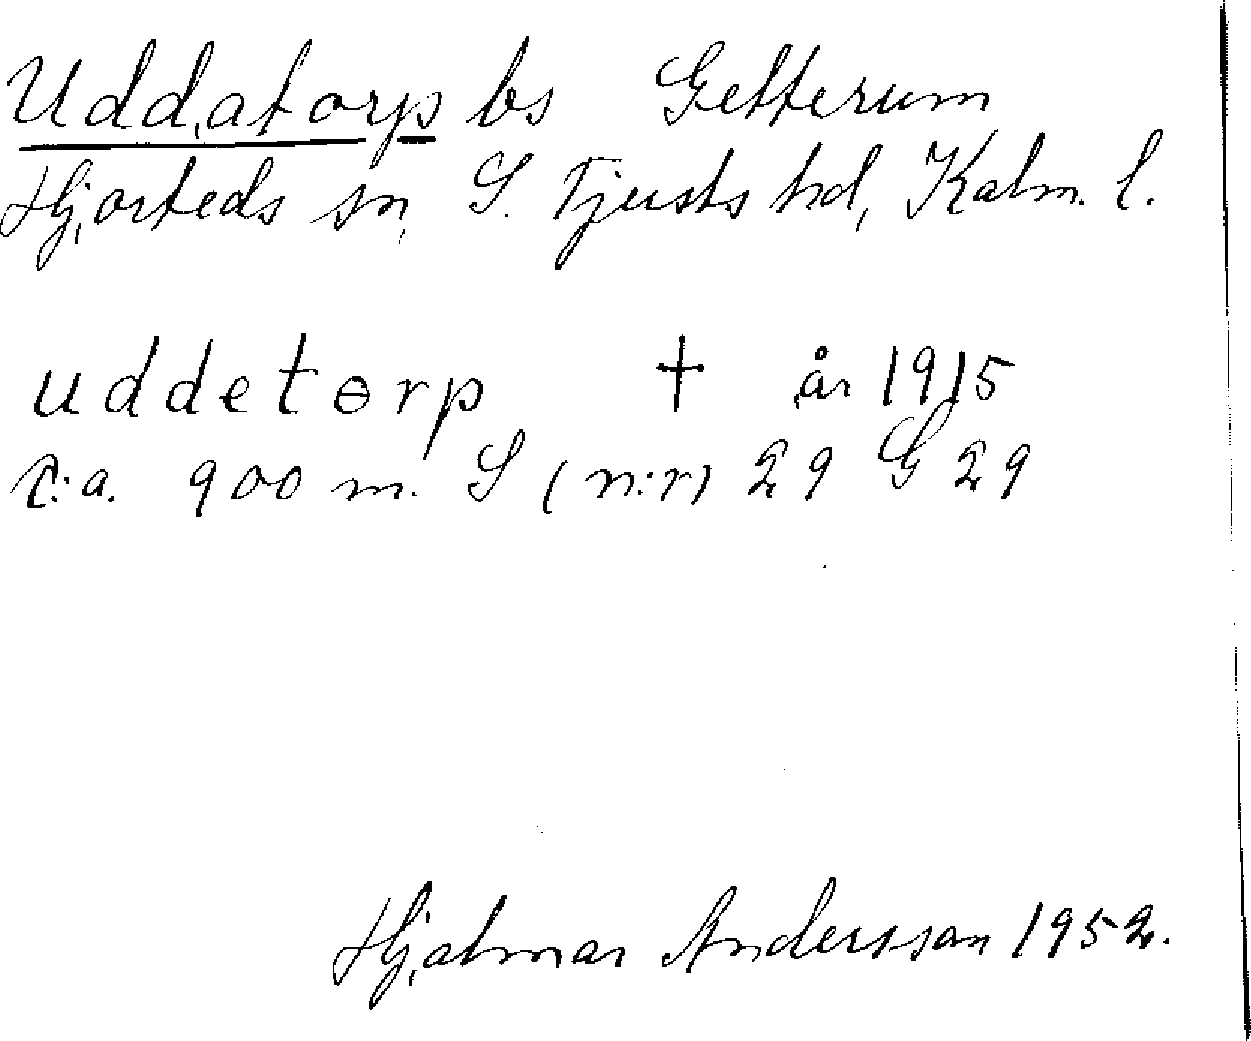 Uddatorp bs Getterum
Hjorteds sn, S. Tjusts hd, Kalm. l.
uddetɵrp † år 1915
c:a. 900 m. S (n:r) 29 G 29
Hjalmar Andersson 1952.